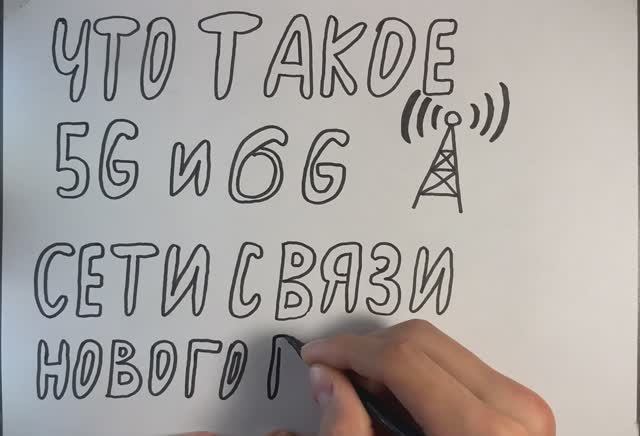 ЧТО ТАКОЕ
5G И 6G
СЕТИ СВЯЗИ
НОВОГО